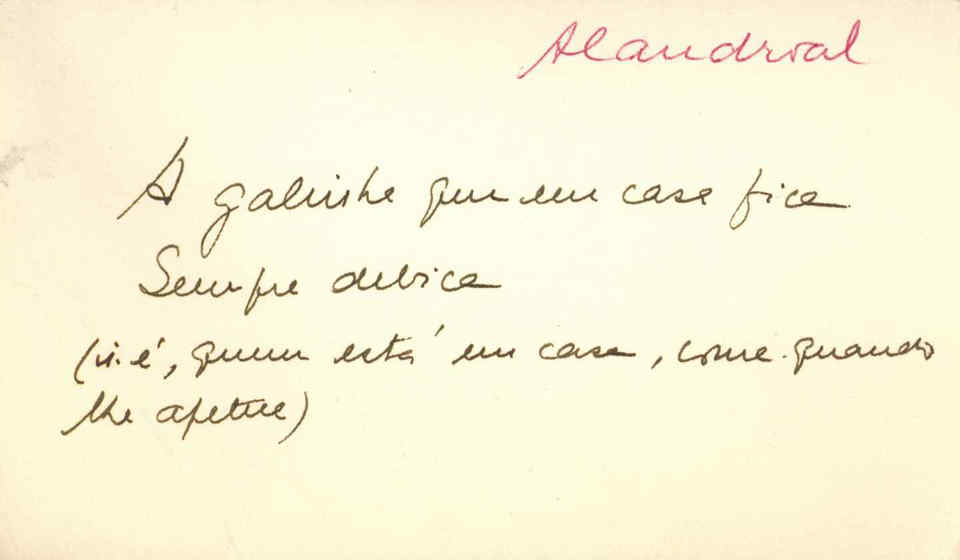 Alandroal
A galinha que em casa fica
Sempre debica
(i. é, quem está em casa, come quando
lhe apetece)